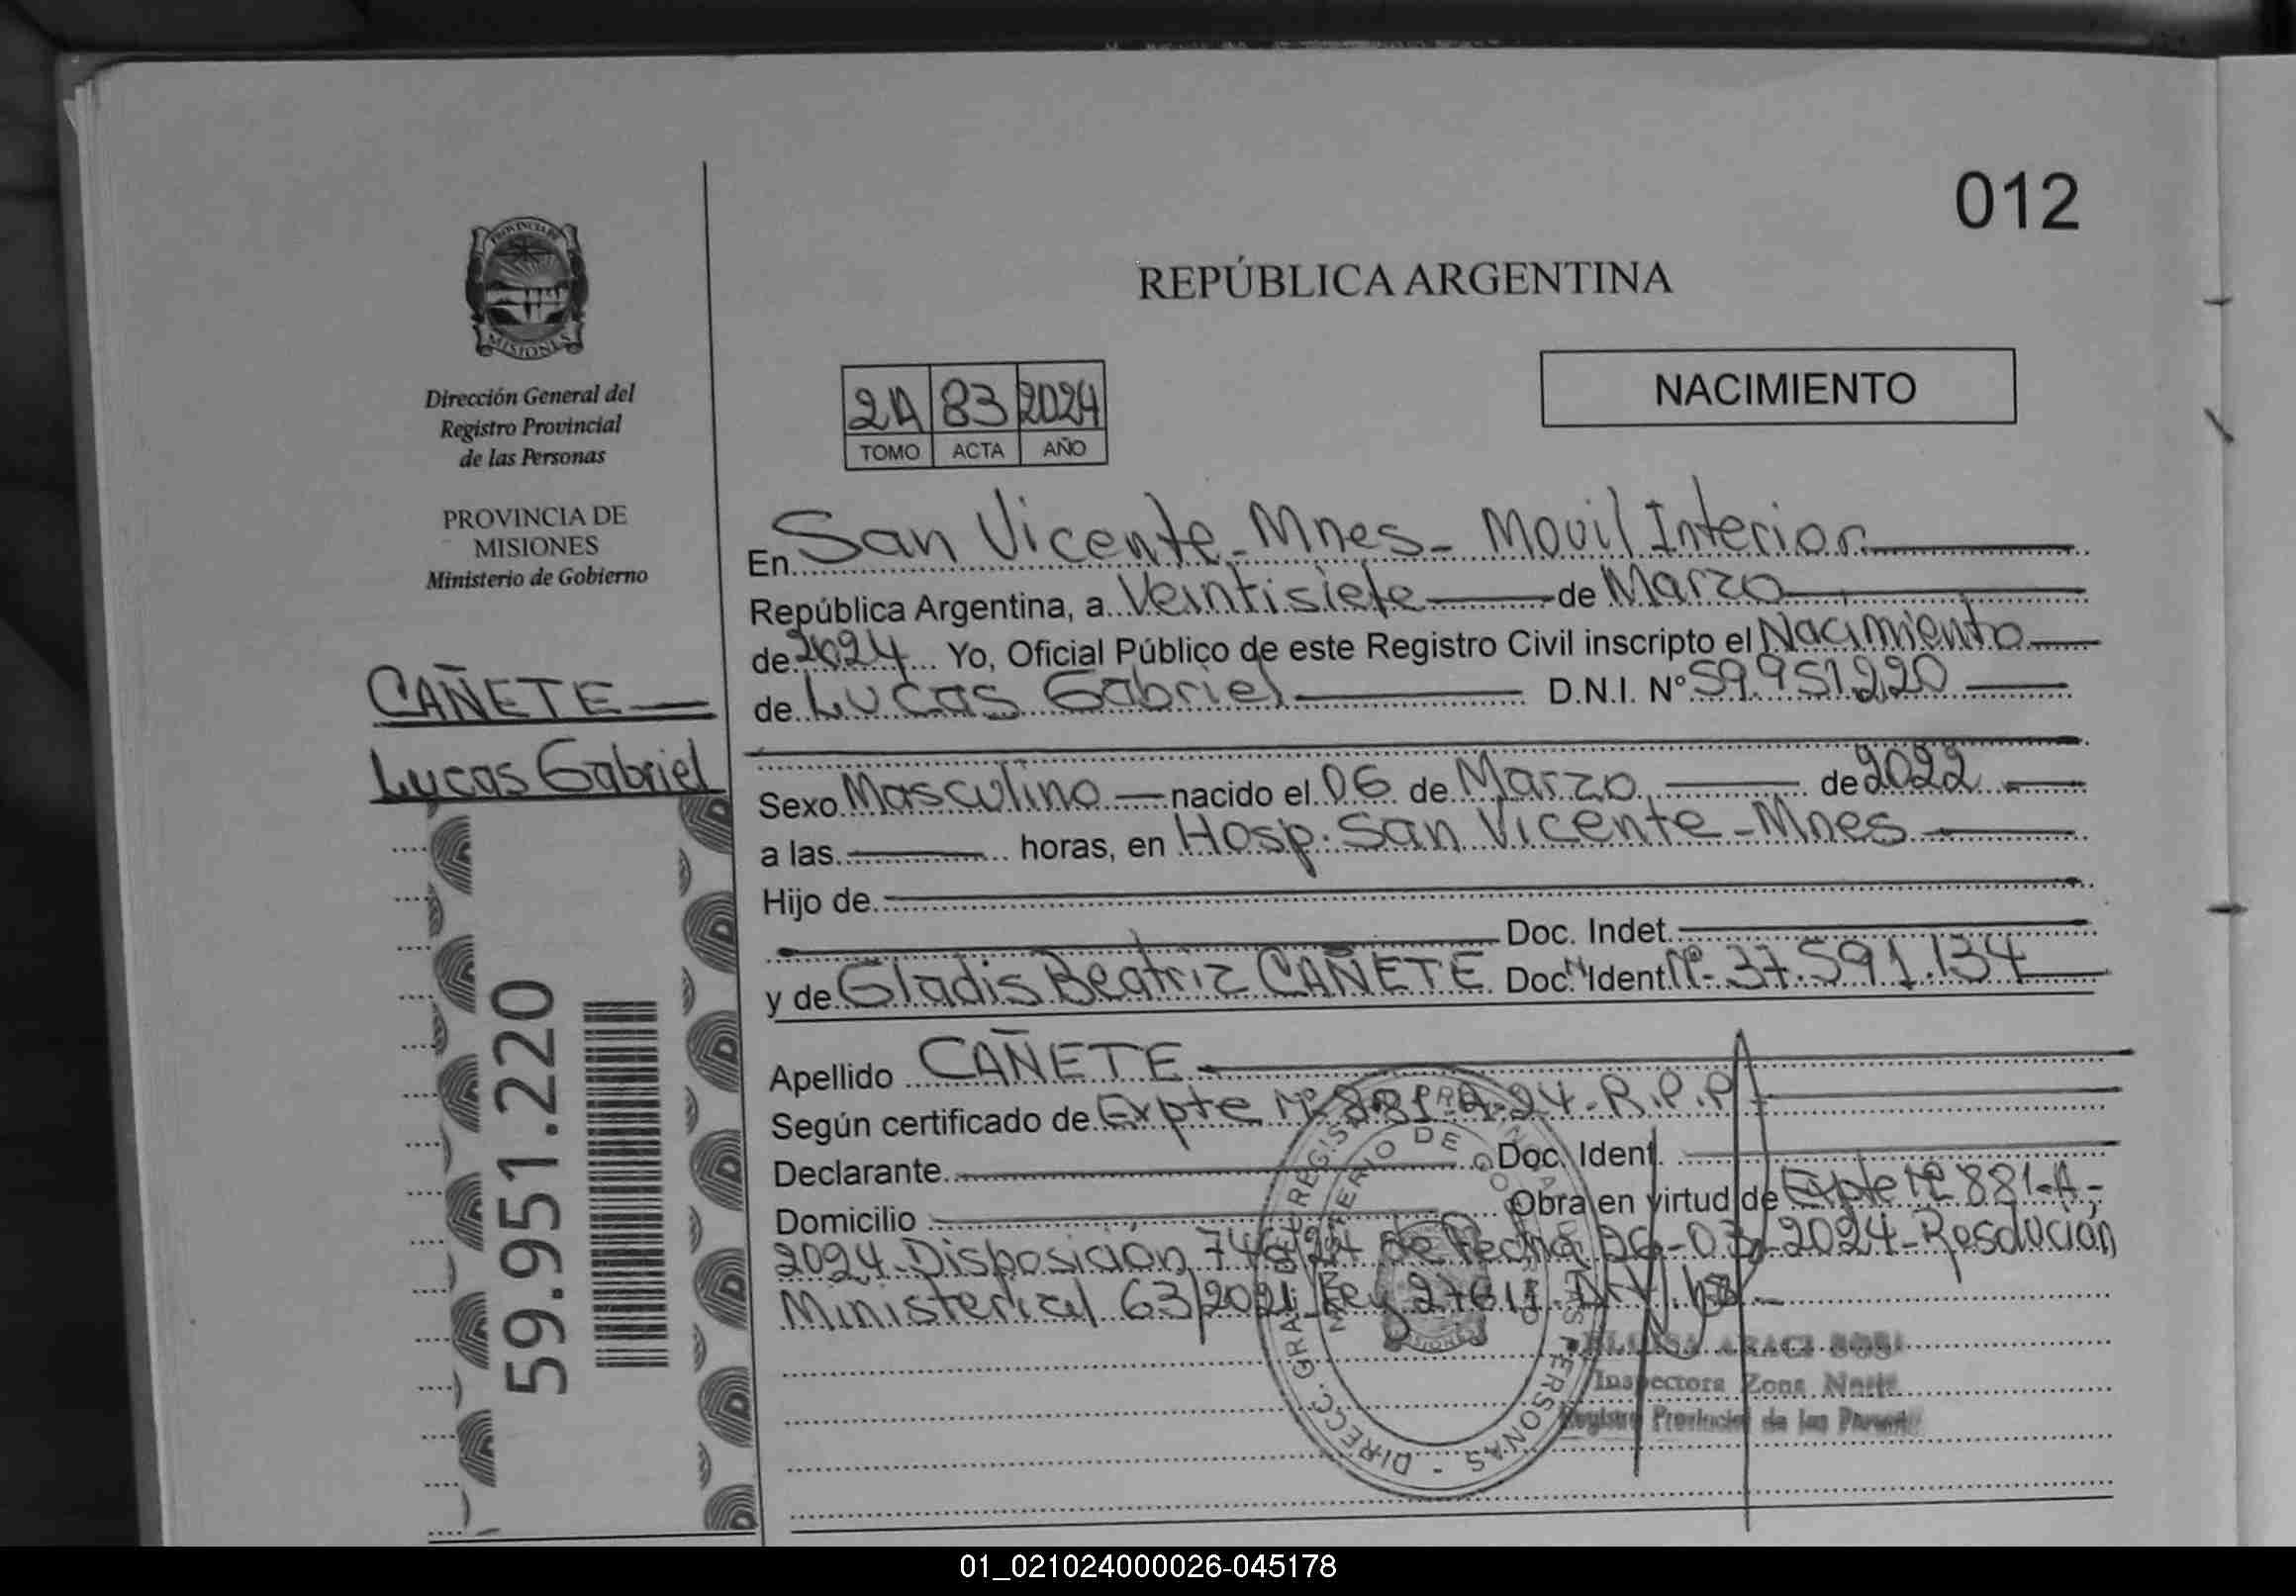 012
REPÚBLICA ARGENTINA
PROVINCIA DE
MISIONES
Dirección General del
Registro Provincial
de las Personas
PROVINCIA DE
MISIONES
Ministerio de Gobierno
2A 83 2024
TOMO ACTA AÑO
NACIMIENTO
CAÑETE
Lucas Gabriel
59.951.220
En San Vicente - Mnes - Movil Interior
República Argentina, a Veintisiete de Marzo
de 2024 Yo, Oficial Público de este Registro Civil inscripto el Nacimiento
de Lucas Gabriel D.N.I. N° 59.951.220
Sexo Masculino nacido el 06 de Marzo de 2022
a las horas, en Hosp. San Vicente - Mnes
Hijo de
Doc. Indet.
y de Gladis Beatriz CAÑETE Doc. Ident. Nº 37.591.134
Apellido CAÑETE
Según certificado de Expte Nº 881-A-24-R.P.P
Declarante Doc. Ident.
Domicilio Obra en virtud de Expte Nº 881-A-
2024. Disposición de Fecha 26-03-2024-Resolución
Ministerial 63/2021 Ley 27611
Inspectora Zona Norte
Registro Provincial de las
01_021024000026-045178